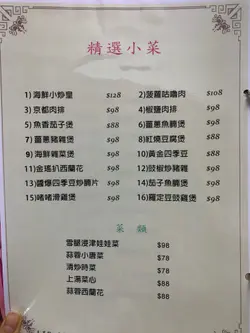 精選小菜
1) 海鮮小炒皇 $128 2) 菠蘿咕嚕肉 $108
3) 京都肉排 $98 4) 椒鹽肉排 $98
5) 魚香茄子煲 $88 6) 薑蔥魚腩煲 $98
7) 薑蔥豬雜煲 $98 8) 紅燒豆腐煲 $88
9) 海鮮雜菜煲 $98 10) 黃金四季豆 $88
11) 金瑤扒西蘭花 $98 12) 豉椒炒豬雜 $98
13) 醬爆四季豆炒腩片 $98 14) 茄子魚腩煲 $98
15) 啫啫滑雞煲 $98 16) 羅定豆豉雞煲 $98
菜類
雪腿浸津娃娃菜 $98
蒜蓉小唐菜 $78
清炒時菜 $78
上湯菜心 $88
蒜蓉西蘭花 $88